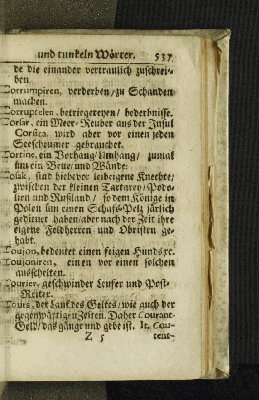 und tunkeln Wörter. 537
de die einander vertraulich zuschrei-
ben.
Corrumpiren, verderben/zu Schanden
machen.
Corruptelen, betriegereyen/ bederbnisse.
Corsar, ein Meer-Reuber aus der Insul
Corsica, wird aber vor einen jeden
Seeschäumer gebrauchet.
Cortine, ein Vorhang/Umhang/ zumal
üm ein Bette/ und Wände.
Cosak, sind hiebevor leibeigene Knechte/
zwischen der kleinen Tartarey/ Podo-
lien und Rußland / so dem Könige in
Polen üm einen Schafs-Peltz järlich
gedienet haben/aber nach der Zeit ihre
eigene Feldherren und Obristen ge-
habt.
Coujon, bedeutet einen feigen Hunds ꝛc.
Coujoniren, einen vor einen solchen
ausschelten.
Courier, geschwinder Leufer und Post-
Reiter.
Cours, der Lauf des Geldes/ wie auch der
gegenwärtigen Zeiten. Daher Courant-
Geld/ das gänge und gebe ist. It. Cou-
Z 5 rent-